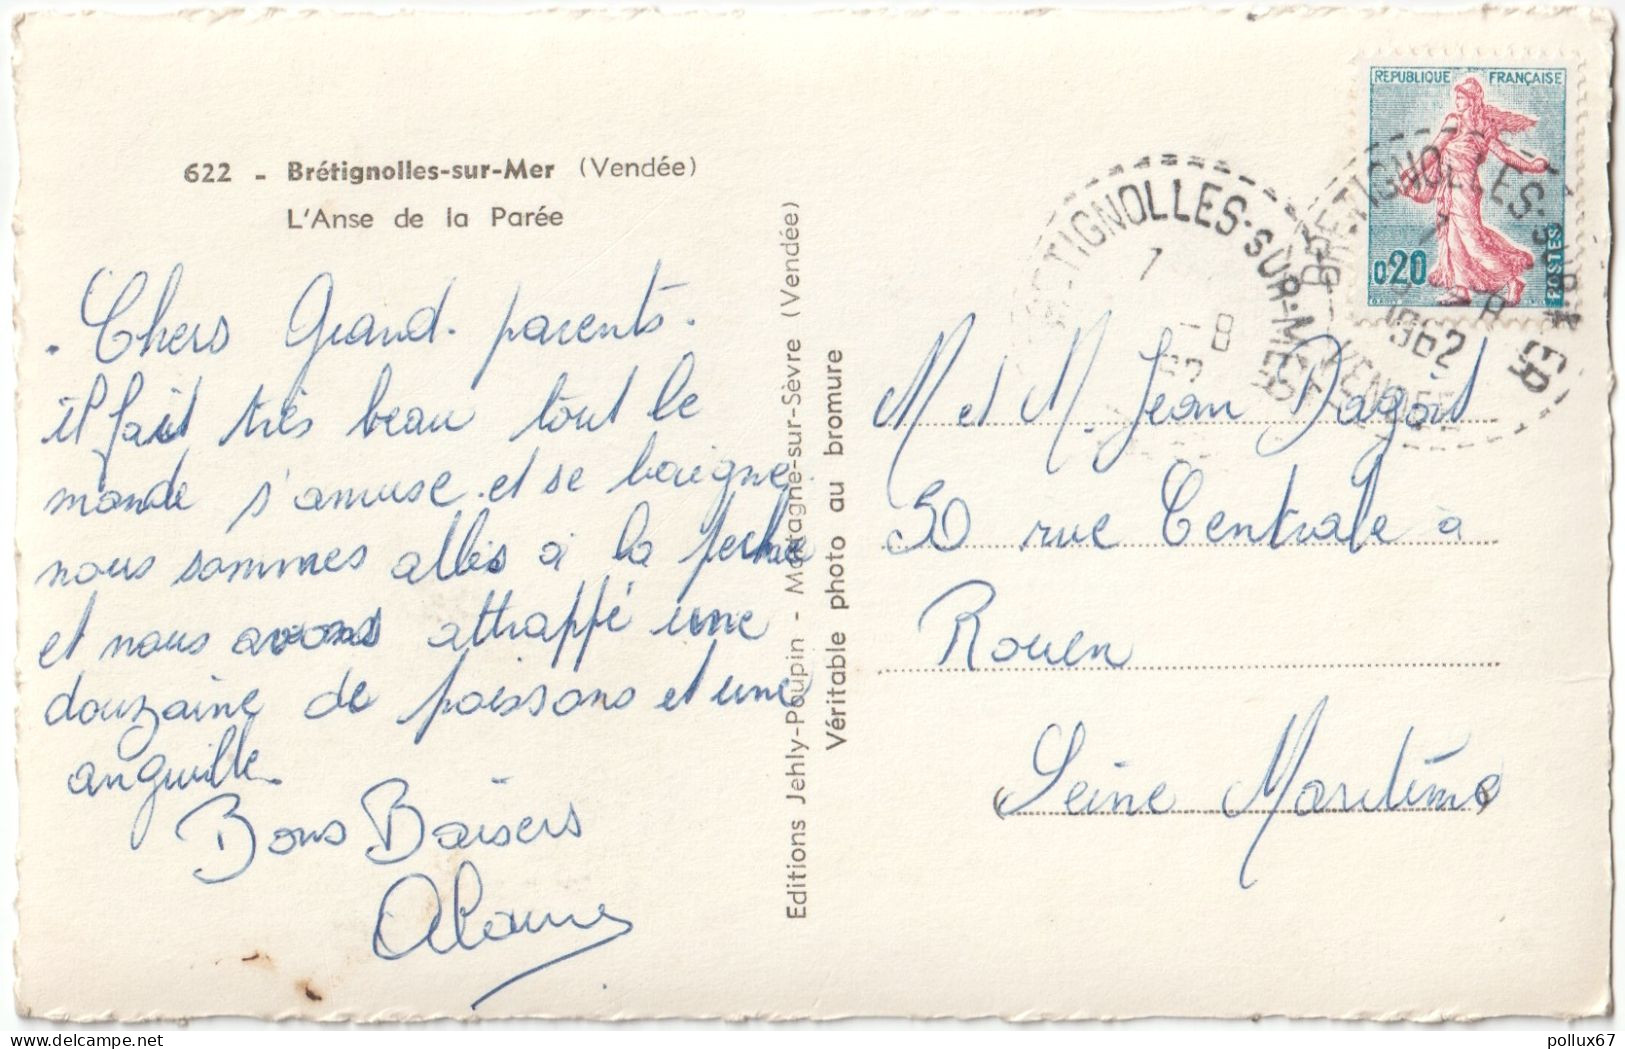 622 - Brétignolles-sur-Mer (Vendée)
L'Anse de la Parée
Chers Grand-parents.
il fait très beau tout le
monde s'amuse et se baigne
nous sommes allés à la peche
et nous avons attrappé une
douzaine de poissons et une
anguille.
Bons Baisers
Editions Jehly-Poupin - Mortagne-sur-Sèvre (Vendée)
Véritable photo au bromure
REPUBLIQUE FRANÇAISE
0,20
POSTES
BRETIGNOLLES-SUR-MER
1962
VENDEE
TIGNOLLES-SUR-MER
-8
M et M. Jean Dagoit
50 rue Centrale à
Rouen
(Seine Maritime)
pollux67